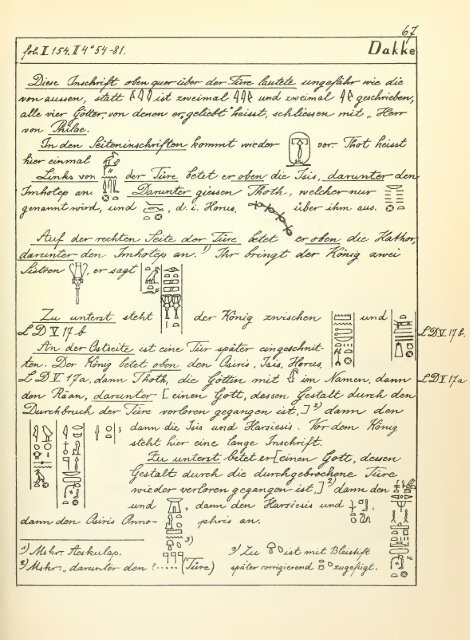 67
fol. I. 154. II 4° 54-81.
Dakke
Diese Inschrift oben quer über der Türe lautete ungefähr wie die
von aussen, statt ist zweimal und zweimal geschrieben,
alle vier Götter, von denen er, geliebt heisst, schliessen mit „Herr
von Philae.
In den Seiteninschriften kommt wieder vor. Thot heisst
hier einmal
Links von der Türe betet er oben die Isis, darunter den
Imhotep an. Darunter giessen Thoth, welcher nur
genannt wird, und , d. i. Horus, über ihm aus.
Auf der rechten Seite der Türe betet er oben die Hathor,
darunter den Imhotep an. 1) Ihr bringt der König zwei
Sistren , er sagt
Zu unterst steht der König zwischen und
LD V 17 b
LD V. 17 b.
An der Ostseite ist eine Tür später eingeschnit-
ten. Der König betet oben den Osiris, Isis, Horus,
LD V 17a, dann Thoth, die Göttin mit im Namen, dann
LD V 17a
den Räan, darunter [einen Gott, dessen Gestalt durch den
Durchbruch der Türe verloren gegangen ist,] 2) dann den
; dann die Isis und Harsiesis. Vor dem König
steht hier eine lange Inschrift.
Zu unterst betet er [einen Gott, dessen
Gestalt durch die durchgebrochene Türe
wieder verloren gegangen ist,] 2) dann den
und , dann den Harsiesis und
dann den Osiris Onno- phris an.
3)
1) Mskr. Aeskulap.
2) Mskr. „darunter den ?...... (Türe)
3) Zu ist mit Bleistift
später corrigierend zugefügt.